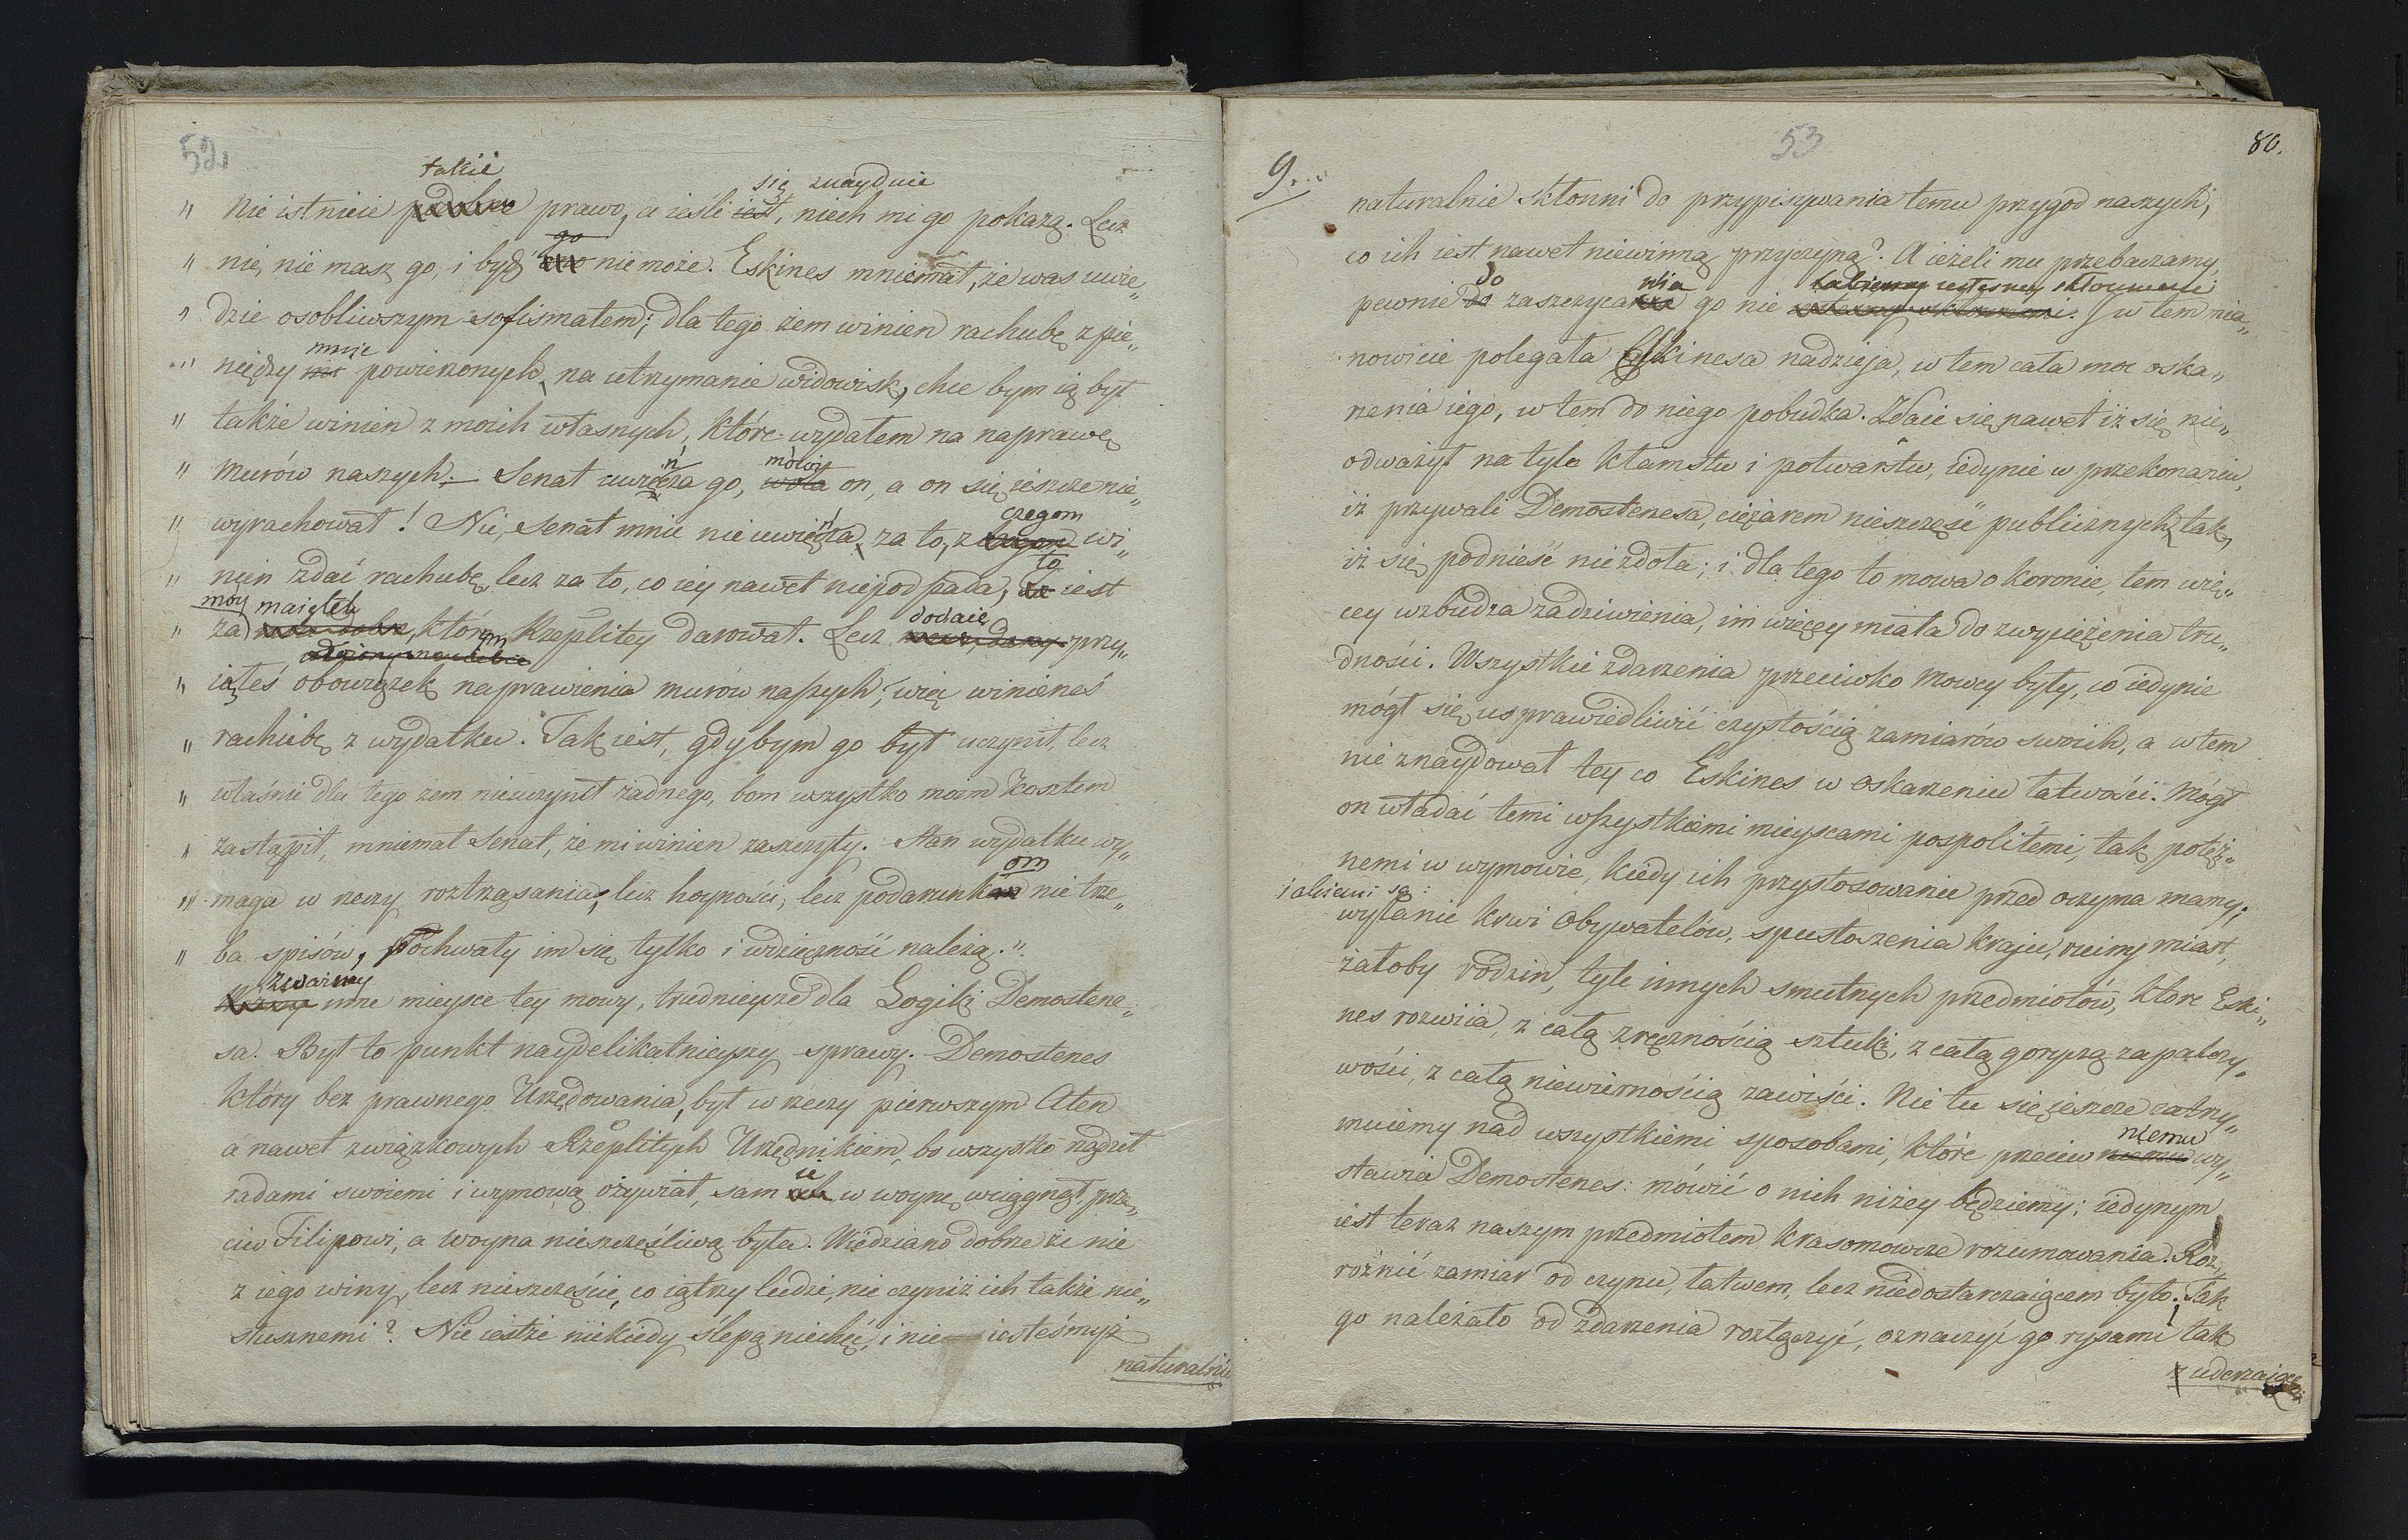 52
takie
„ Nie istnieie podobne prawo, a ieśli iest, niech mi go pokażą. Lecz
się znayduie
„ nie, nie masz go, i bydź nie może. Eskines mniemał, że was uwie„
go
„ dzie osobliwszym sofismatem; dla tego żem winien rachubę z pie„
„ niędzy mi powierzonych, na utrzymanie widowisk, chce bym ią był
mnie
„ także winien z moich własnych, które wydałem na naprawę
„ murów naszych. — Senat uwieńcza go, woła on, a on się ieszcze nie„
mówi
„ wyrachował! Nie, Senat mnie nie uwieńcza za to, z czegom wi„
czegom
„ nien zdać rachubę, lecz za to, co iey nawet niepodpada, to iest
to
„ za moie dobra, którym Rzeplitey darował. Lecz przy„
móy maiątek
dodaie
„ iąłeś obowiązek naprawienia murów naszych, więc winieneś
„ rachubę z wydatku. Tak iest, gdybym go był uczynił, lecz
„ właśnie dla tego żem nieuczynił żadnego, bom wszystko moim kosztem
„ zastąpił, mniemał Senat, że mi winien zaszczyty. Stan wydatku wy„
„ maga w rzeczy roztrząsania, lecz hoyności, lecz podarunkom nie trze„
om
„ ba spisów, Pochwały im się tylko i wdzięczność należą."
Zważmy
inne mieysce tey mowy, trudnieysze dla Logiki Demostene„
sa. Był to punkt naydelikatnieyszy sprawy. Demostenes
który bez prawnego Urzędowania, był w rzeczy pierwszym Aten
a nawet związkowych Rzeplitych Urzędnikiem, bo wszystko nadzet
radami swoiemi i wymową ożywiał, sam ie w woynę wciągnął prze„
ciw Filipowi, a woyna nieszczęśliwą była. Wiedziano dobrze że nie
z iego winy, lecz nieszczęście, co iątrzy ludzi, nie czyniż ich także nie„
słusznemi? Nie iestże niekiedy ślepą niechęć, i nie iesteśmyż
naturalnie
9.
53
80.
naturalnie skłonni do przypisywania temu przygod naszych,
co ich iest nawet niewinną przyczyną? A ieżeli mu przebaczamy,
pewnie do zaszczycania go nie iesteśmy skłonnemi. W tem mia„
do
nia
nowicie polegała Eskinesa nadzieja, w tem cała moc oska„
rżenia iego, w tem do niego pobudka. Zdaie się nawet iż się nie„
odważył na tyle kłamstw i potwarstw, iedynie w przekonaniu,
iż przywali Demostenesa, ciężarem nieszczęść publicznych, tak,
iż się podnieść niezdoła; i dla tego to mowa o koronie, tem wię„
cey wzbudza zadziwienia, im więcey miała do zwyciężenia tru„
dności. Wszystkie zdarzenia przeciwko Mowcy były, co iedynie
mógł się usprawiedliwić czystością zamiarów swoich, a w tem
nie znaydował tey co Eskines w oskarżeniu łatwości. Mógł
on władać temi wszystkiemi mieyscami pospolitemi, tak potęż„
nemi w wymowie, kiedy ich przystosowanie przed oczyma mamy;
wylanie krwi Obywatelów, spustoszenia kraju, ruiny miast,
żałoby rodzin, tyle innych smutnych przedmiotów, które Eski„
nes rozwiia, z całą zręcznością sztuki, z całą goryczą zapalczy„
wości, z całą niewiernością zawiści. Nie tu się ieszcze zatrzy„
muiemy nad wszystkiemi sposobami, które przeciw niemu wy„
niemu
stawia Demostenes: mówić o nich niżey będziemy; iedynym
iest teraz naszym przedmiotem krasomowcze rozumowania. Roz„
różnić zamiar od czynu, łatwem, lecz niedostarczaiącem było. Tak
go należało od zdarzenia roztączyć, oznaczyć go rysami tak
uderzaiące